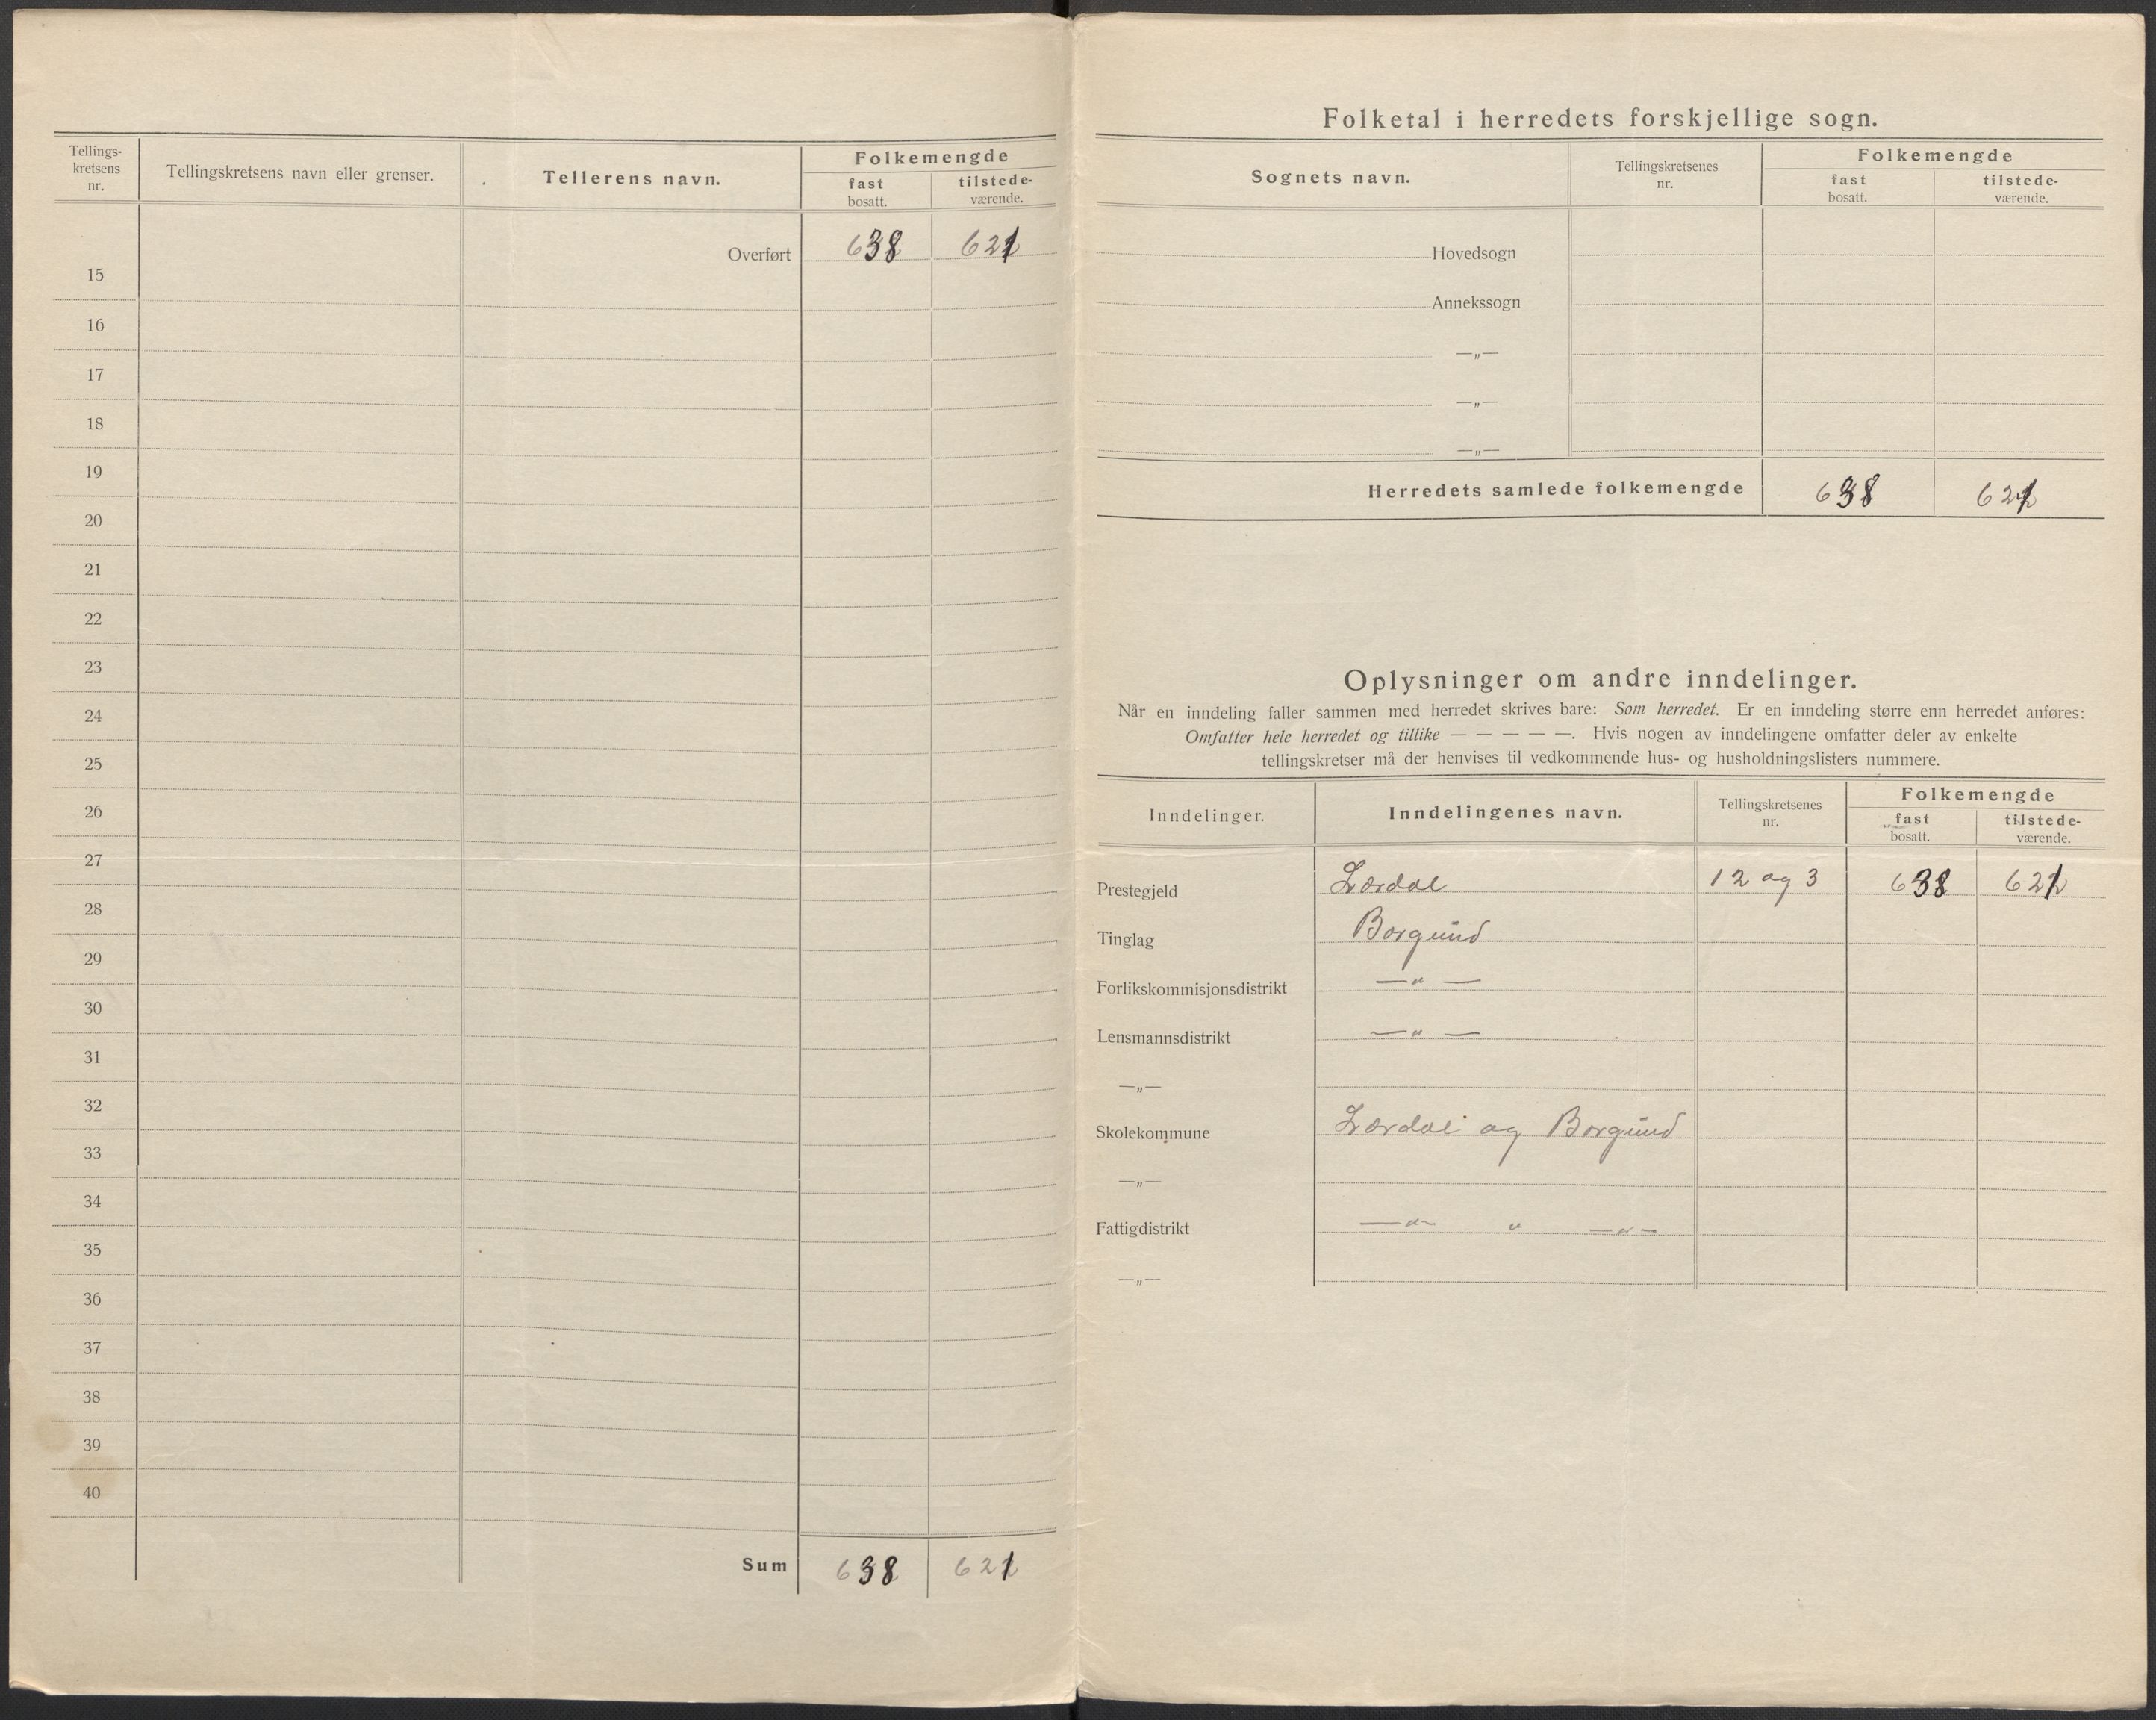 Tellings-
kretsens
nr.
Tellingskretsens navn eller grenser.
Tellerens navn.
Folkemengde
fast
bosatt.
tilstede-
værende.
Overført 638 621
15
16
17
18
19
20
21
22
23
24
25
26
27
28
29
30
31
32
33
34
35
36
37
38
39
40
Sum 638 621
Folketal i herredets forskjellige sogn.
Sognets navn.
Tellingskretsenes
nr.
Folkemengde
fast
bosatt.
tilstede-
værende.
Hovedsogn
Annekssogn
—„—
—„—
—„—
Herredets samlede folkemengde 638 621
Oplysninger om andre inndelinger.
Når en inndeling faller sammen med herredet skrives bare: Som herredet. Er en inndeling større enn herredet anføres:
Omfatter hele herredet og tillike — — — — —. Hvis nogen av inndelingene omfatter deler av enkelte
tellingskretser må der henvises til vedkommende hus- og husholdningslisters nummere.
Inndelinger.
Inndelingenes navn.
Tellingskretsenes
nr.
Folkemengde
fast
bosatt.
tilstede-
værende.
Prestegjeld Lærdal 1 2 og 3 638 621
Tinglag Borgund
Forlikskommisjonsdistrikt —„—
Lensmannsdistrikt —„—
—„—
Skolekommune Lærdal og Borgund
—„—
Fattigdistrikt —„— „ —„—
—„—